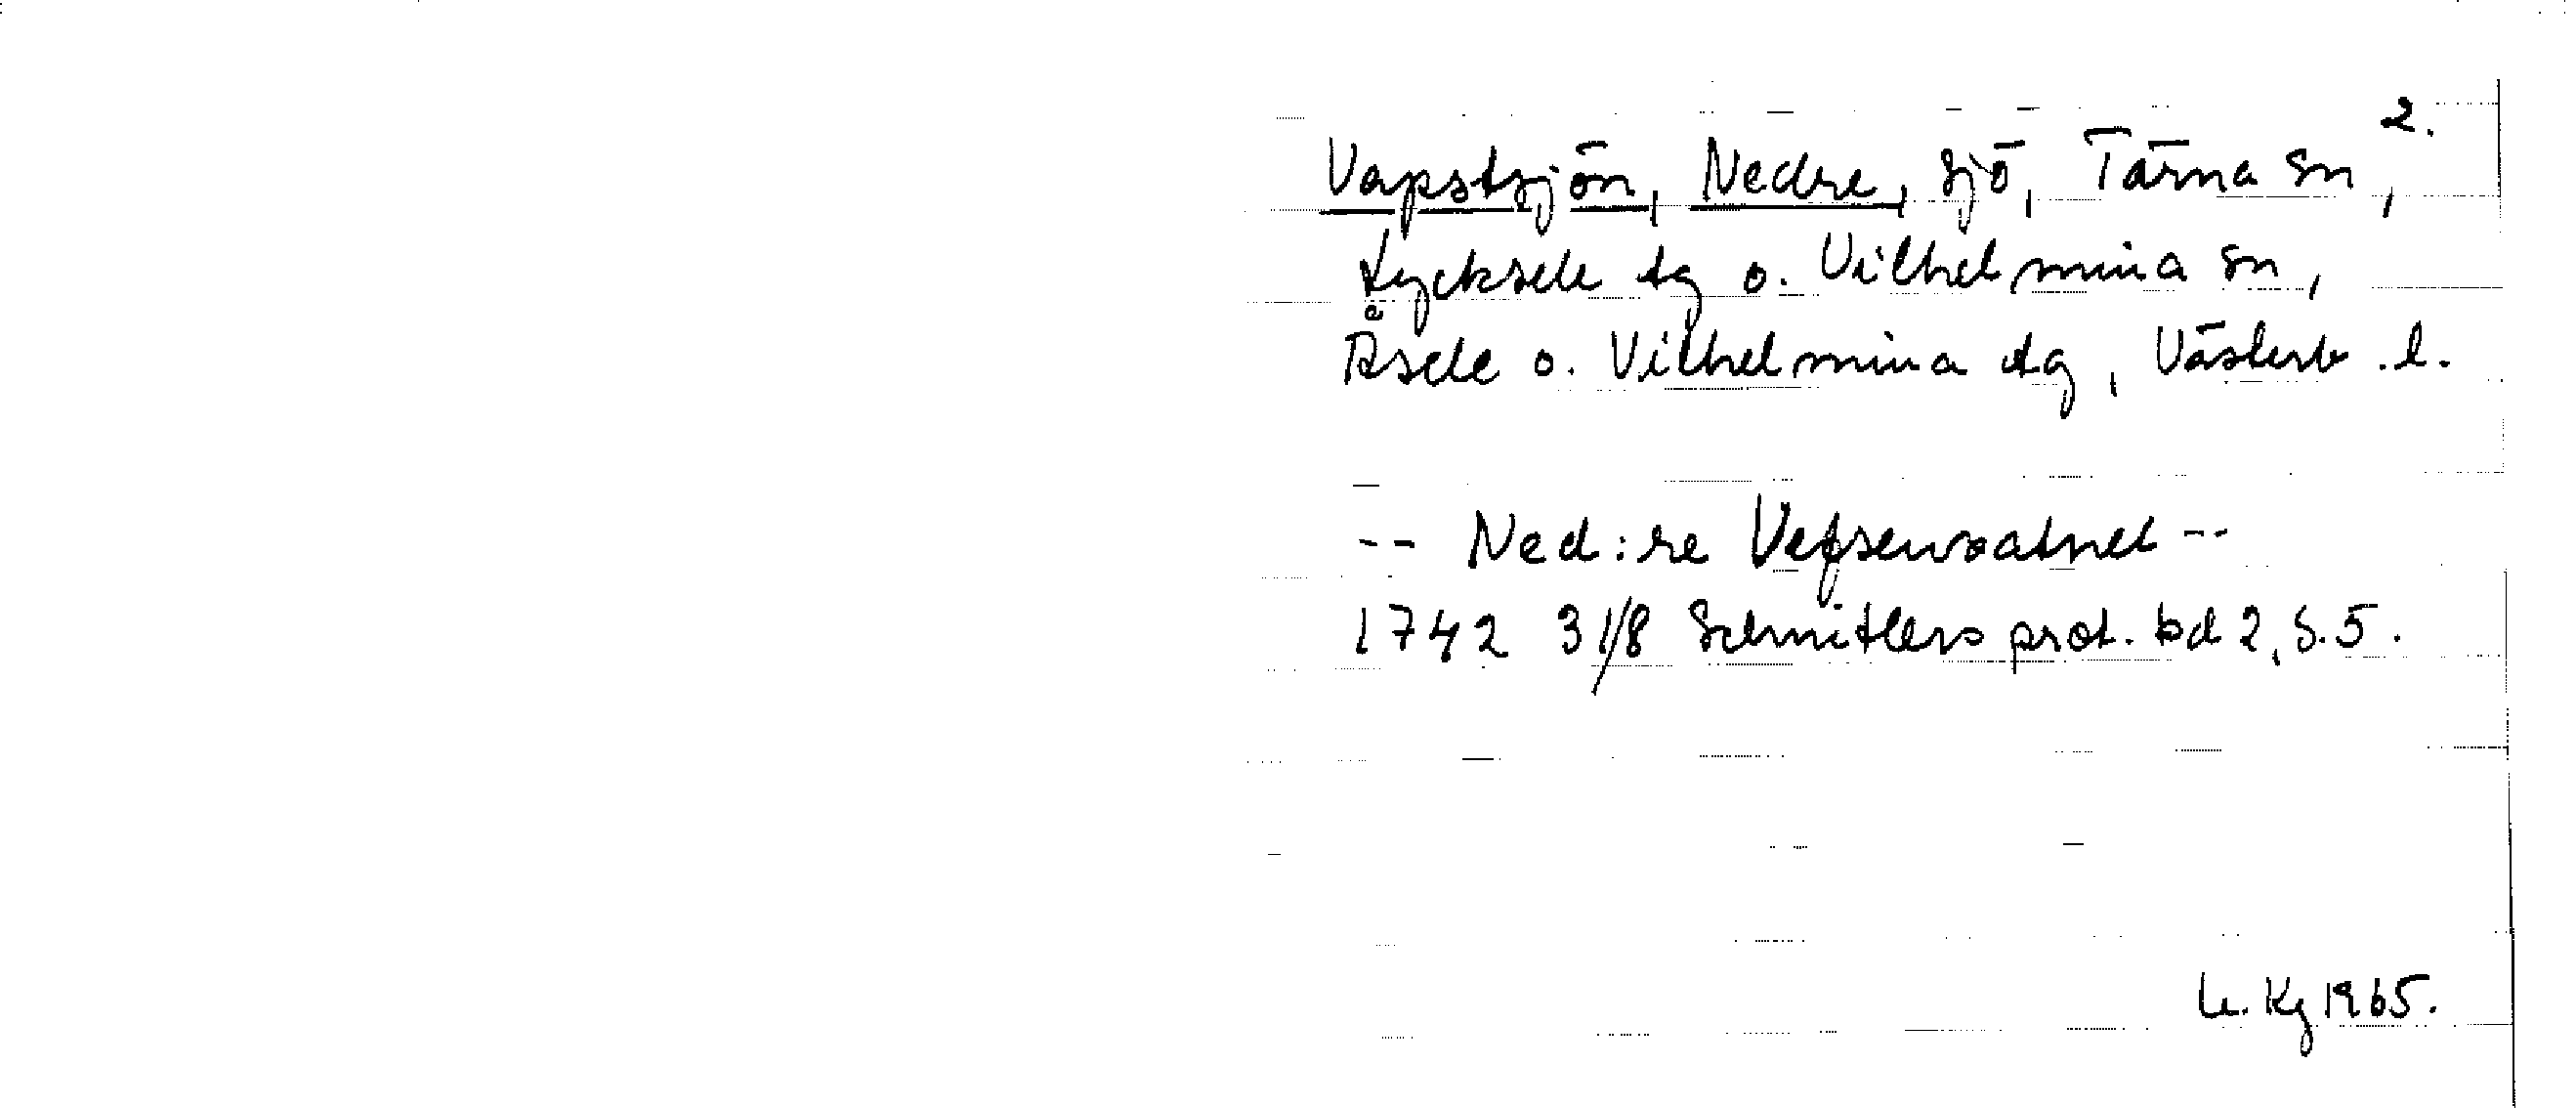 2.
Vapstsjön, Nedre, sjö, Tärna sn,
Lycksele tg o. Vilhelmina sn,
Åsele o. Vilhelmina tg, Västerb.l.
-- Ned:re Vefsenvatnet --
1742 31/8 Schnitlers prot. bd 2, s.5.
Kg 1965.